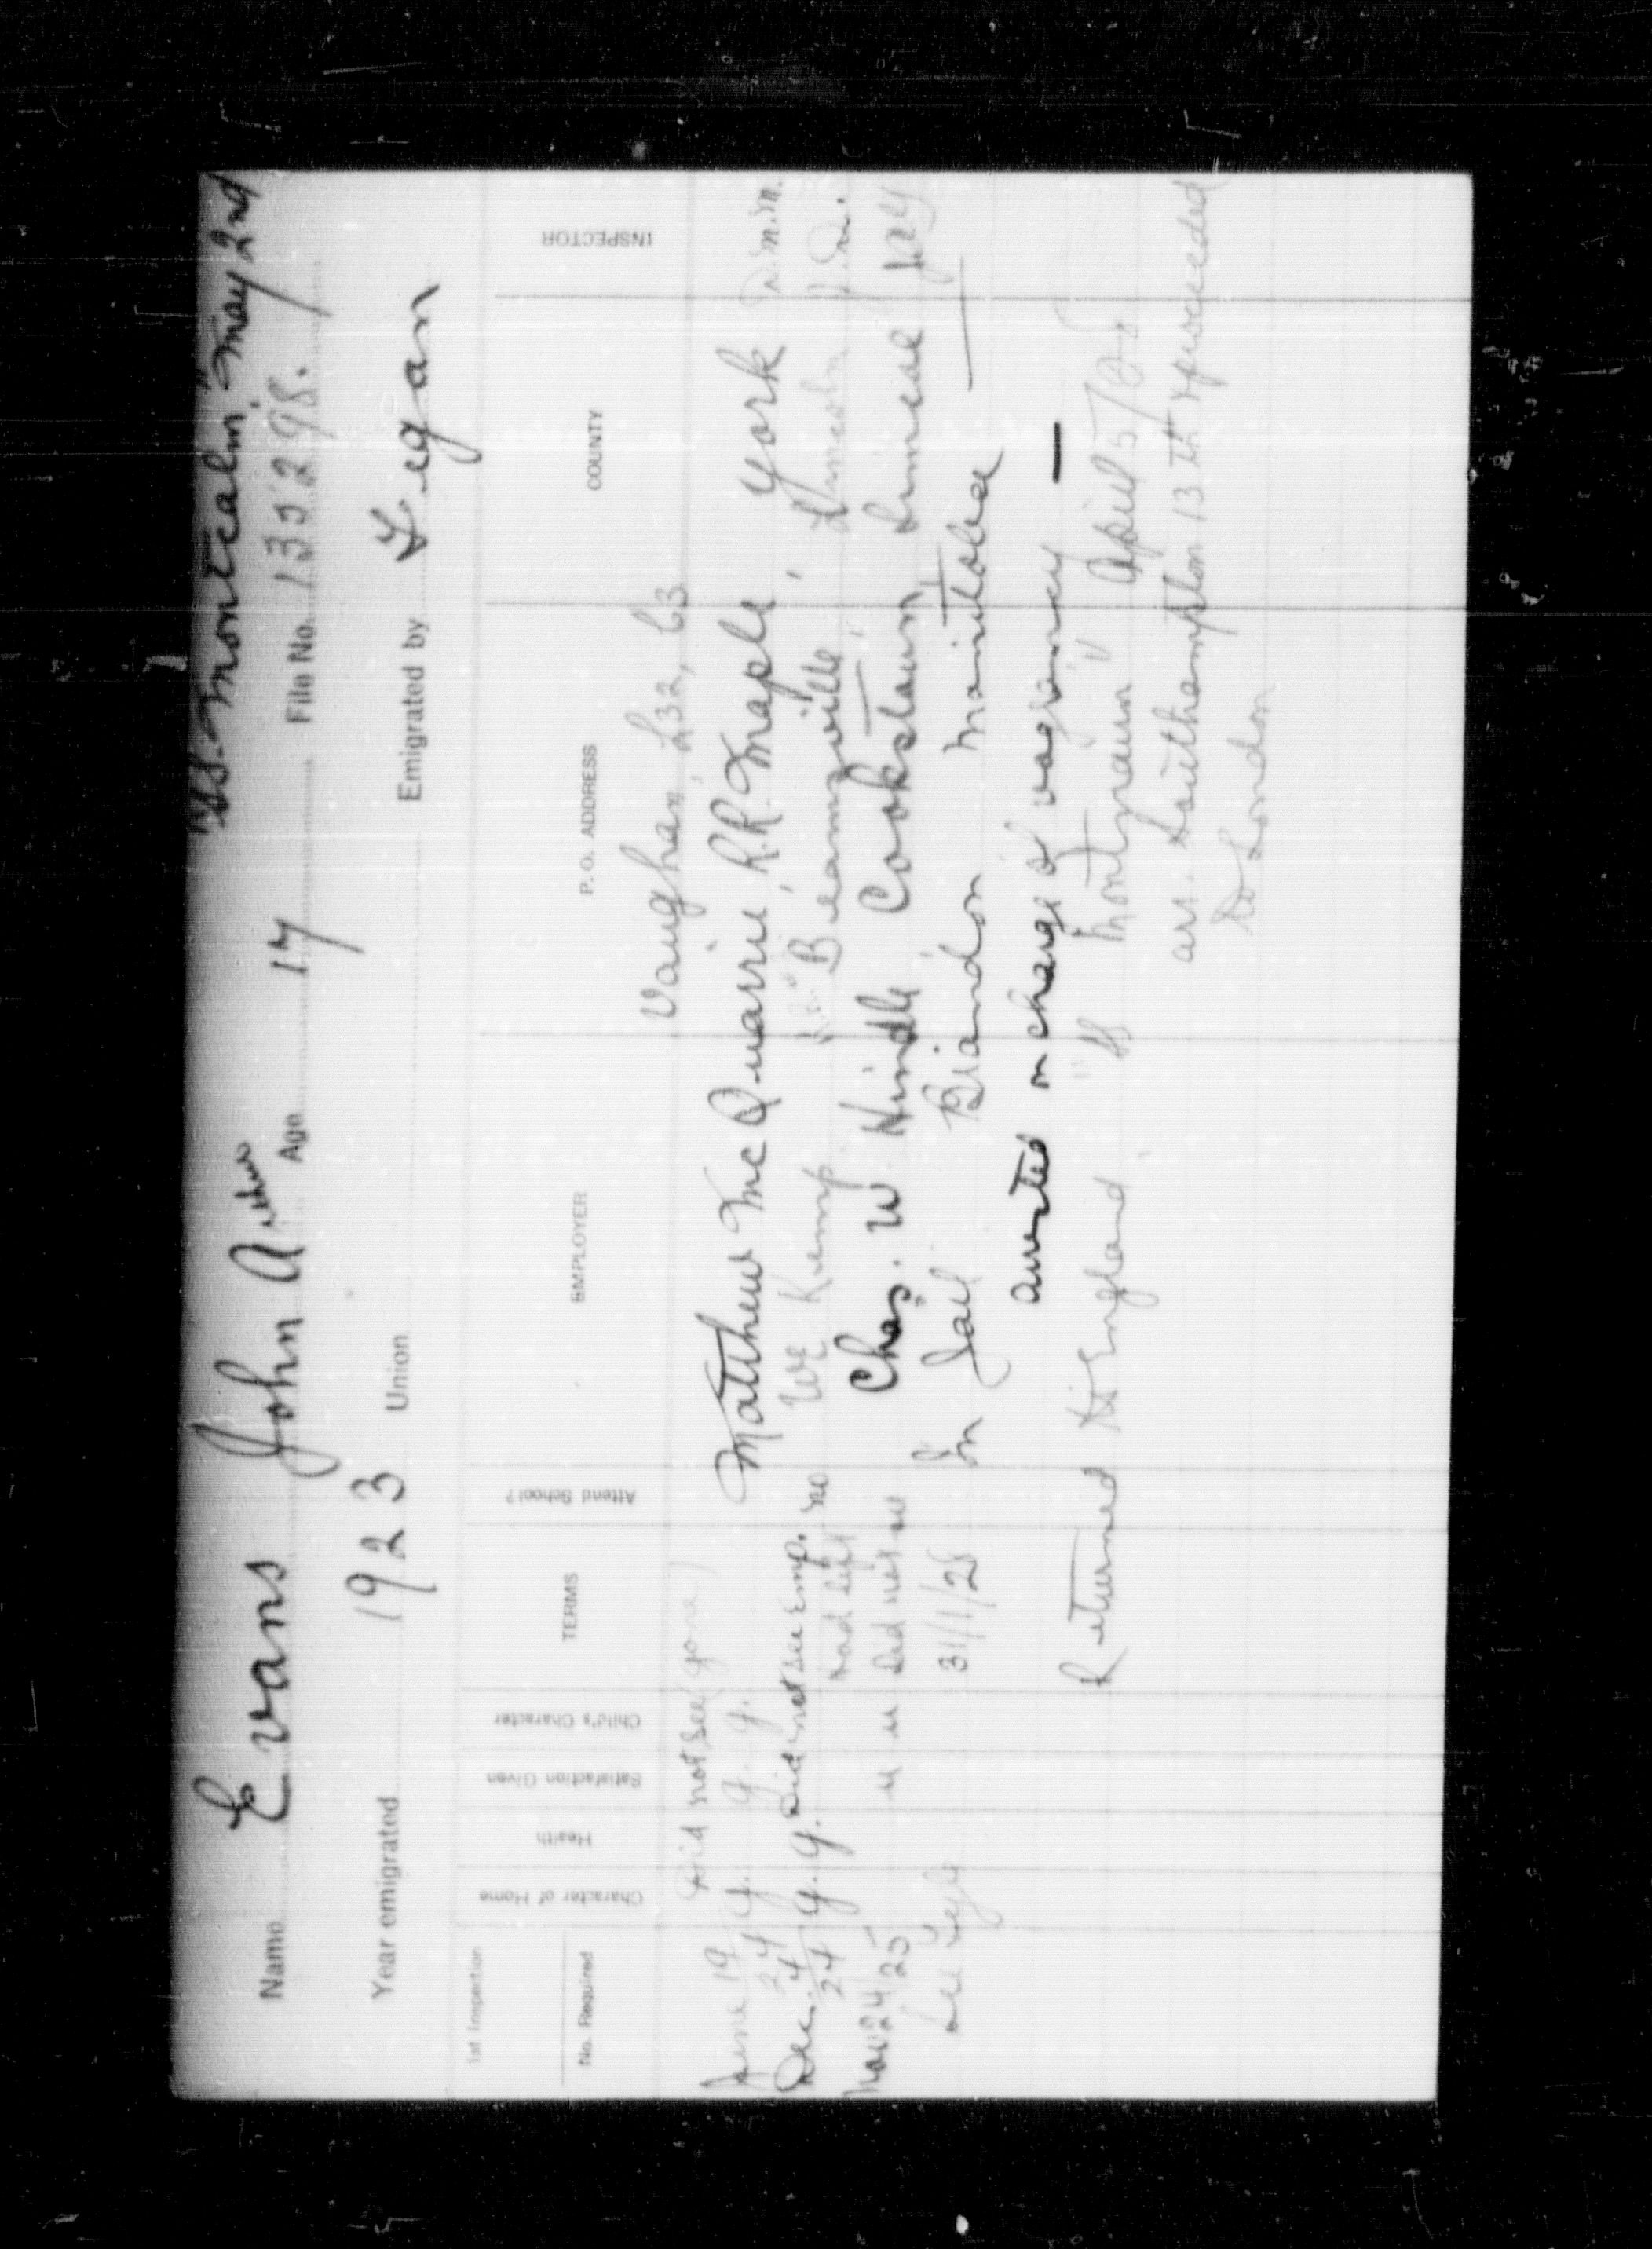 "SS. Montcalm" May 2nd
Name Evans John Arthur Age 17 File No. 135298.
Year emigrated 1923 Union Emigrated by Fegan
1st Inspection
No. Required
Character of Home Health Satisfaction Given Child's Character TERMS Attend School? EMPLOYER P. O. ADDRESS COUNTY INSPECTOR
Vaughan, L32, C3
Did not see (gone)
June 19/24 g. g. g. Matthew McQuarrie, R.R. Maple, York
Dec. 4/24 g. g. Did not see Emp. no W E Kemp Beamsville, Lincoln
had left
Nov 24/25 " " Did not see Chas. W Hindle, Cookstown, Simcoe
See Fyle 31/1/28 In Jail Brandon Manitoba —
arrested on charge of vagrancy —
Returned to England "SS Montnairn" April 5/28
arr. Southampton 13th & proceeded
to London